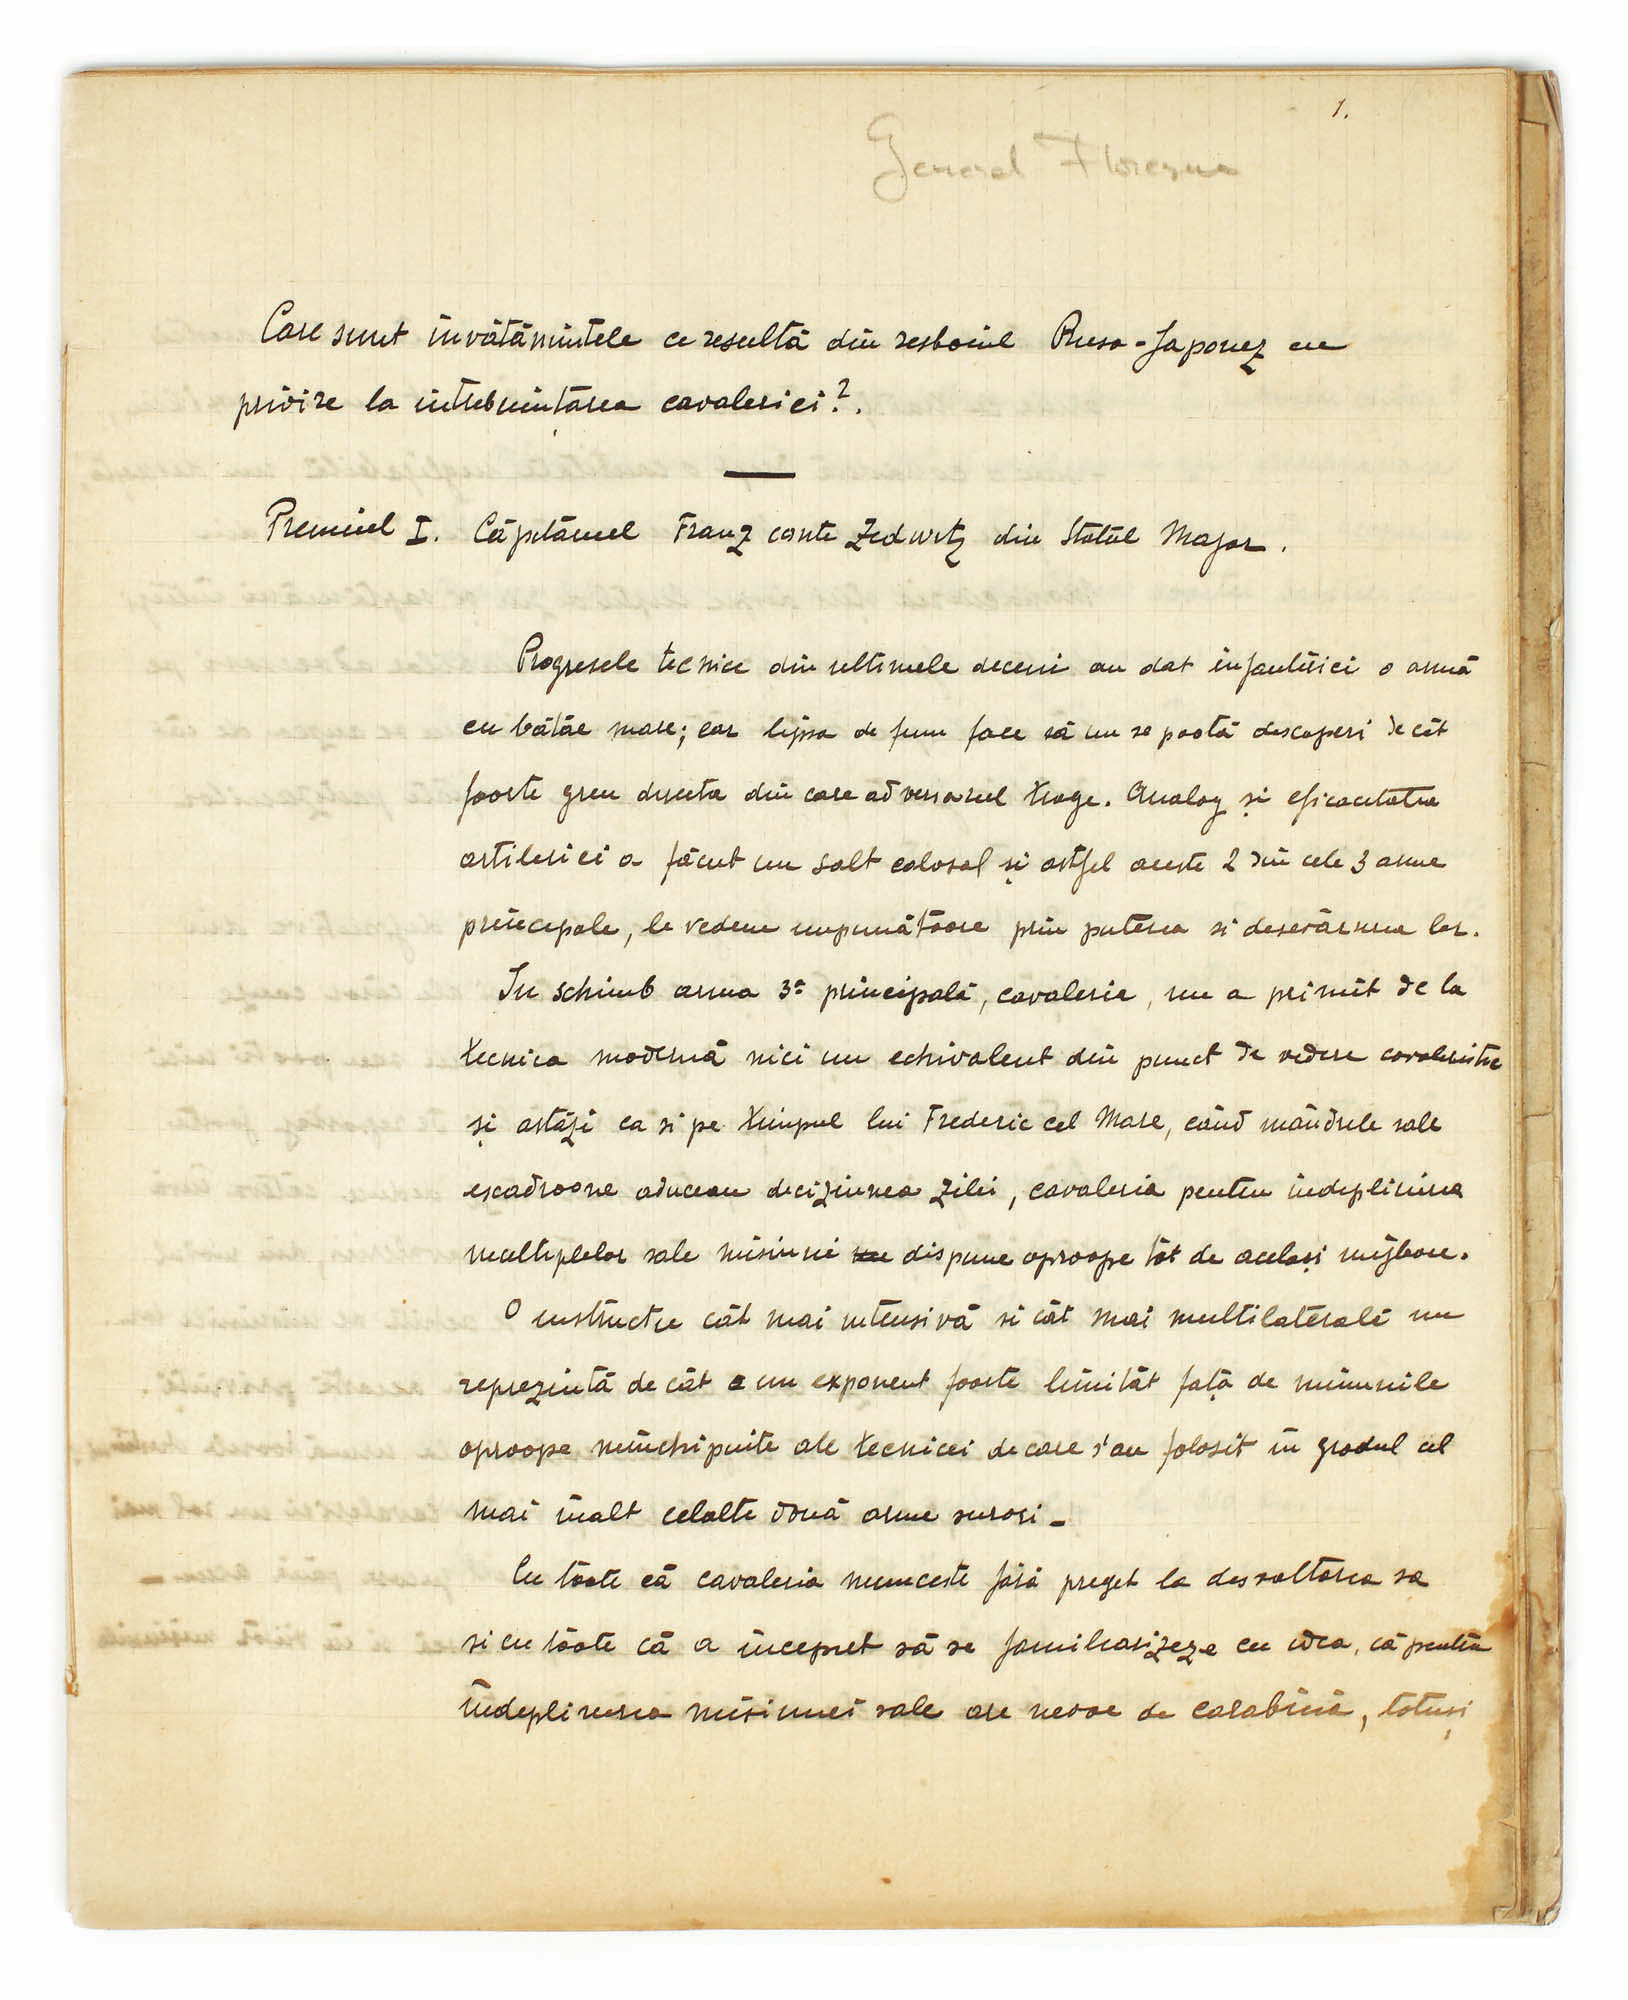 1.
General Florescu
Care sunt învătămintele ce resultă din resboiul Ruso-Japonez cu
privire la intrebuințarea cavaleriei?.
Premiul I. Căpitanul Franz conte Zedwitz din Statul Major.
Progresele tecnice din ultimele decenii au dat infanteriei o armă
cu bătăe mare; ear lipsa de fum face să nu se poată descoperi de cât
foarte greu directia din care adversarul trage. Analog și eficacitatea
artileriei a făcut un salt colosal și astfel aceste 2 din cele 3 arme
principale, le vedem impunătoare prin puterea si desevârsirea lor.
In schimb arma 3ᵃ principală, cavaleria, nu a primit de la
tecnica modernă nici un echivalent din punct de vedere cavaleristic
și astăzi ca si pe timpul lui Frederic cel Mare, când mândrele sale
escadroane aduceau deciziunea zilei, cavaleria pentru indeplinirea
multiplelor sale misiuni nu dispune aproape tot de același mijloace.
O instructie cât mai intensivă si cât mai multilaterală nu
reprezintă de cât un exponent foarte limităt față de minunile
aproape neînchipuite ale tecnicei de care s'au folosit in gradul cel
mai inalt celalte două arme surori -
Cu toate că cavaleria munceste fără preget la desvoltarea sa
si cu toate că a inceput să se familiarizeze cu idea, că pentru
indeplinirea misiunei sale are nevoe de carabină, totuși